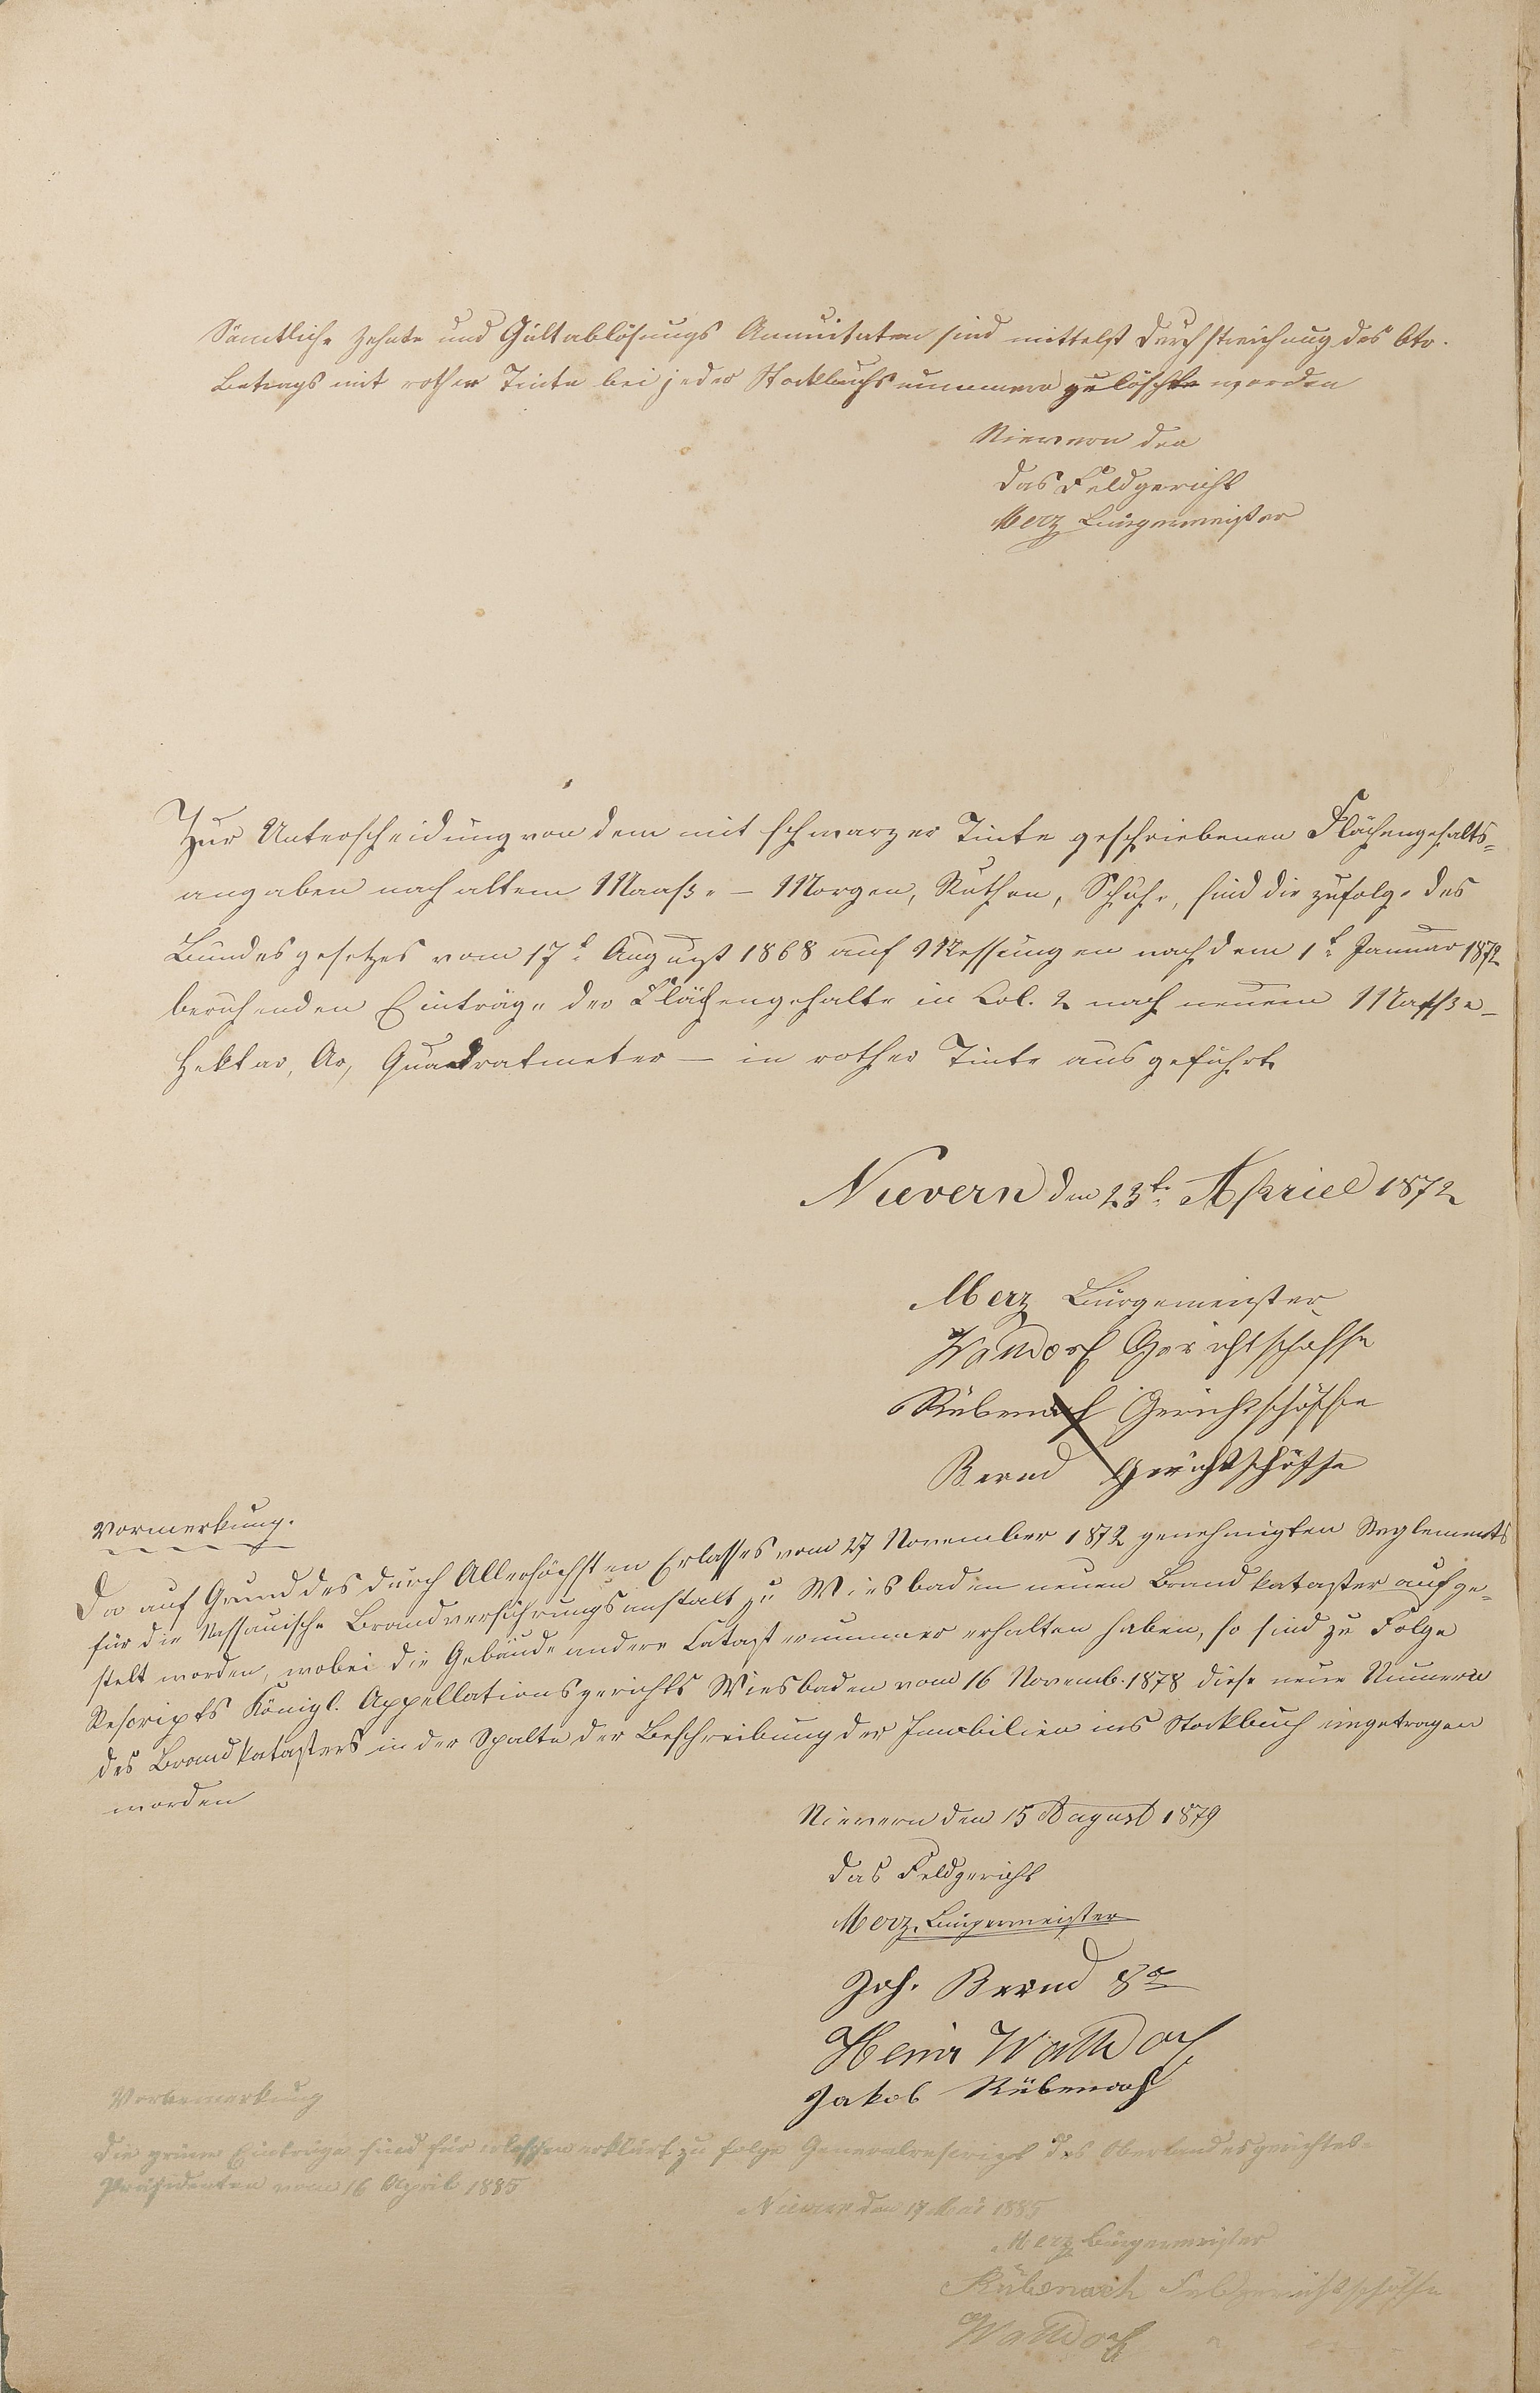 Sämtliche Zehnte und Gültablösungs Annuitaten sind mittelst Durchstreichung des btr.
Betrags mit rother Tinte bei jeder Stockbuchsnummern gelöscht worden
Nievern den
Das Feldgericht
Merz Bürgermeister
Zur Unterscheidung von dem mit schwarzer Tinte geschriebenen Flächengehalts=
angaben nach altem Maaße – Morgen, Ruthen, Schuhe, sind die zufolge des
Bundesgesetzes vom 17t August 1868 auf Messungen nach dem 1t Januar 1872
beruhenden Einträge der Flächengehalte in Col. 2 nach neuem Maaße –
Hektar, Ar, Quadratmeter – in rother Tinte ausgeführt
Nievern den 23t Apriel 1872
Merz Bürgermeister
Walldorf Gerichtschöffe
Rübenach Gerichtschöffe
Bernd Gerichtschöffe
Vormerkung.
Da auf Grund des durch Allerhöchsten Erlasses vom 27 November 1872 genehmigten Reglements
für die Nassauische Brandversicherungsanstalt zu Wiesbaden neuen Brandkataster aufge=
stelt worden, wobei die Gebäude andere Catasternummer erhalten haben, so sind zu Folge
Rescripts Königl. Appellationsgerichts Wiesbaden vom 16 Novemb. 1878 diese neue Numern
des Brandkatasters in der Spalte der Beschreibung der Imobilien ins Stockbuch eingetragen
worden
Nievern den 15 August 1879
Das Feldgericht
Merz, Bürgermeister
Joh. Bernd 8r
Heinr Walldorf
Jakob Rübenach
Vorbemerkung
Die grüne Einträge sind für erloschen erklärt zu folge Generalrescript des Oberlandesgerichtes=
Präsidenten vom 16 April 1885
Nievern den 17 Mai 1885
Merz Bürgermeister
Rübenach Feldgerichtschöffe
Walldorf " "